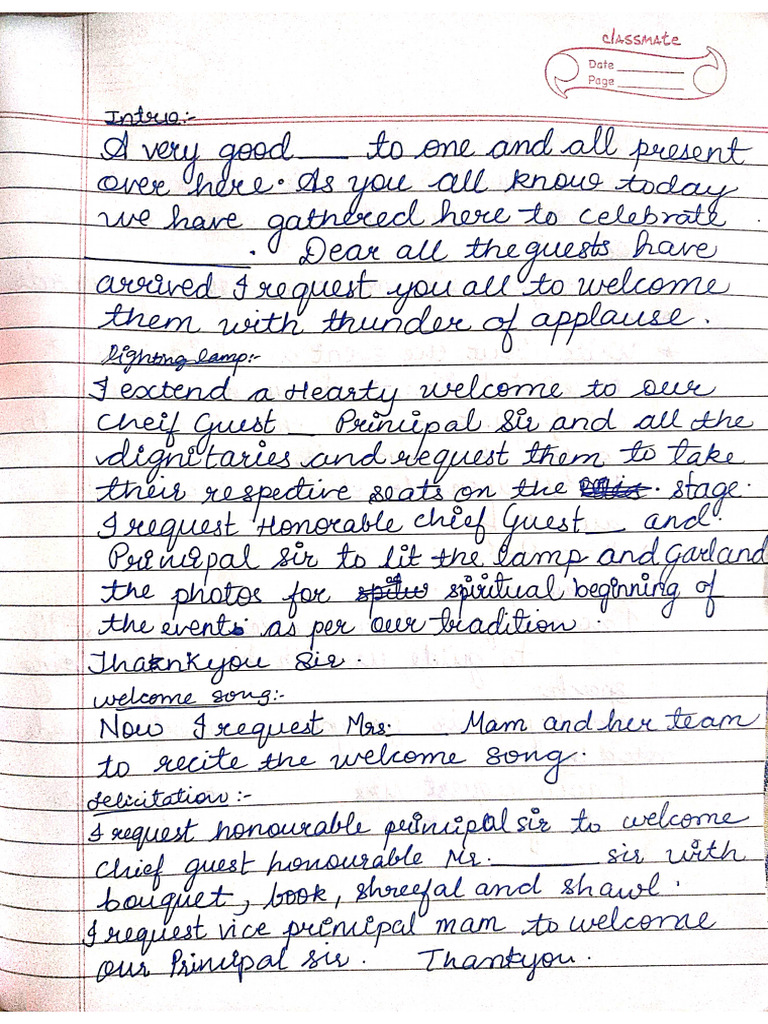 classmate
Date
Page
Intro:-
A very good ___ to one and all present
over here. As you all know today
we have gathered here to celebrate
___________. Dear all the guests have
arrived I request you all to welcome
them with thunder of applause.
lighting lamp:-
I extend a Hearty welcome to our
Cheif Guest _ Principal Sir and all the
dignitaries and request them to take
their respective seats on the stage.
I request Honorable Chief Guest __ and
Principal sir to lit the lamp and Garland
the photos for spiritual beginning of
the event as per our tradition.
Thankyou Sir.
welcome song:-
Now I request Mrs. ____ Mam and her team
to recite the welcome song.
felicitation:-
I request honourable principal sir to welcome
Chief guest honourable Mr. _______ sir with
bouquet, book, shreefal and shawl.
I request vice principal mam to welcome
our Principal sir. Thankyou.